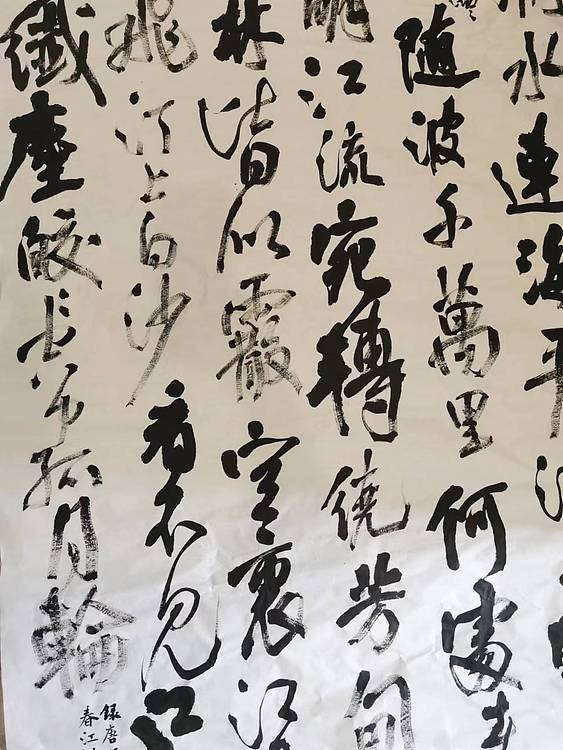 水連海平
隨波千萬里何處
江流宛轉繞芳甸
林皆似霰空裏
飛汀上白沙看不見江
纖塵皎孤月輪
錄唐
春江